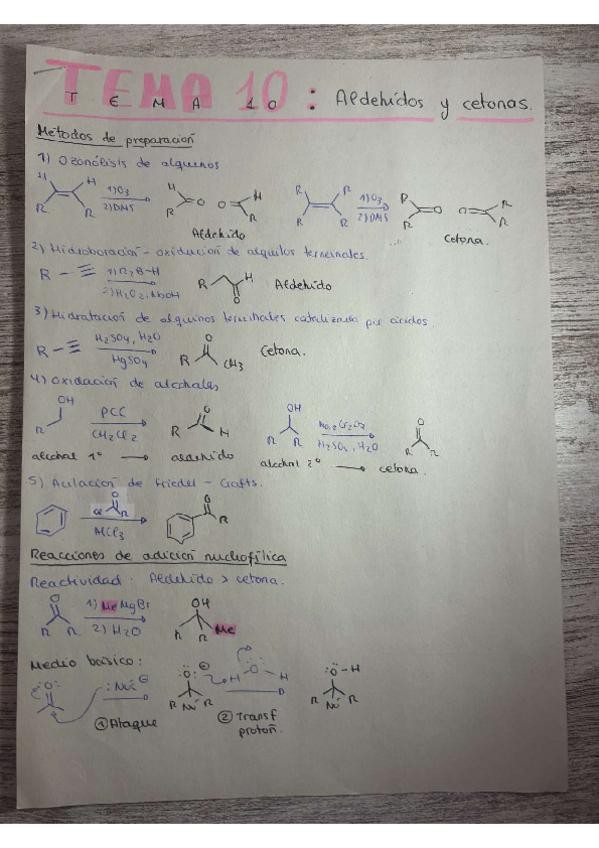 TEMA 10: Aldehídos y cetonas.
Métodos de preparación
1) Ozonólisis de alquenos
H H 1) O3 2) DMS H H R R O O R R
R R 1) O3 2) DMS R O O R R
Aldehído Cetona.
2) Hidroboración - oxidación de alquilos terminales.
R 1) R2B-H 2) H2O2, NaOH R H O Aldehído
3) Hidratación de alquinos terminales catalizada por ácidos.
R H2SO4, H2O HgSO4 R O CH3 Cetona.
4) Oxidación de alcoholes
OH R PCC CH2Cl2 O R H
OH R R Na2Cr2O7 H2SO4, H2O O R R
alcohol 1º aldehído alcohol 2º cetona.
5) Acilación de Friedel - Crafts.
Cl O R AlCl3 O R
Reacciones de adición nucleofílica
Reactividad: Aldehído > cetona.
O R R 1) MeMgBr 2) H2O OH R R Me
Medio básico:
:O: :Nu⊖ :O:⊖ R Nu R H-O-H :O-H R Nu R
① Ataque ② Transf
protón